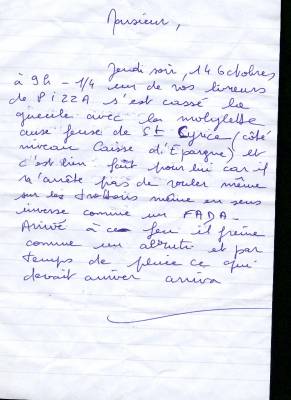 Monsieur,
Jeudi soir, 14 octobres
à 9h - 1/4 un de vos livreurs
de PIZZA s'est cassé la
gueule avec la mobylette
au feu de St Cyrice (côté
niveau Caisse d'Epargne) et
c'est bien fait pour lui car il
n'arrête pas de rouler même
sur les trottoirs même en sens
inverse comme un FADA -
Arrivé à ce feu il freine
comme un abruti et par
temps de pluie ce qui
devait arriver arriva